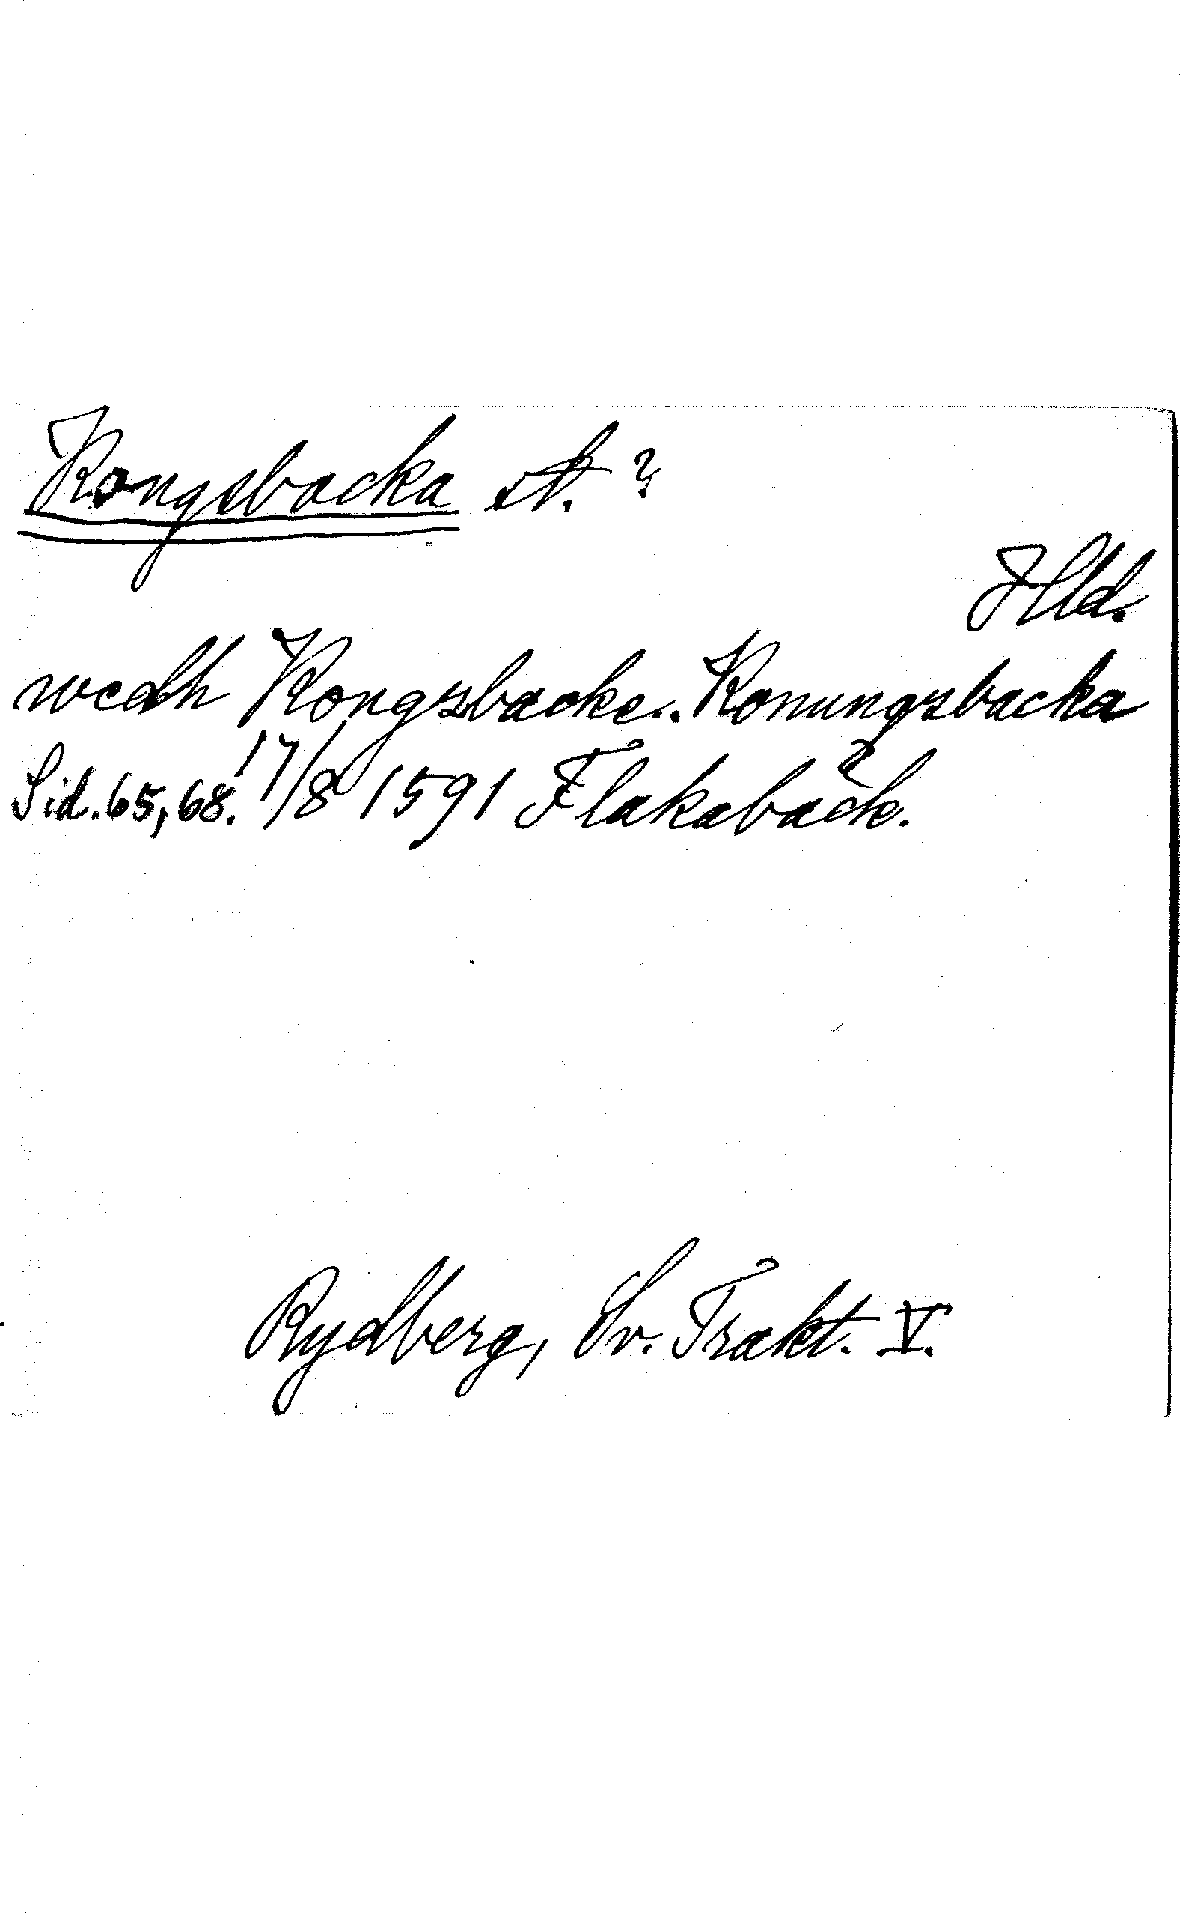 Kongsbacka st. ?
Hld.
wedh Kongzbacke.. Konungzbacka
Sid. 65, 68. 17/8 1591 Flakabäck.
Rydberg, Sv. Trakt. V.